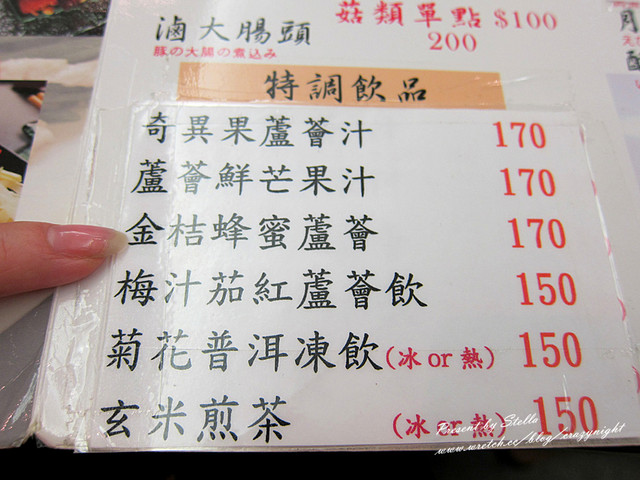 菇類單點 $100
滷大腸頭 200
豚の大腸の煮込み
特調飲品
奇異果蘆薈汁 170
蘆薈鮮芒果汁 170
金桔蜂蜜蘆薈 170
梅汁茄紅蘆薈飲 150
菊花普洱凍飲(冰 or 熱) 150
玄米煎茶 (冰 or 熱) 150
Present by Stella
www.wretch.cc/blog/crazynight